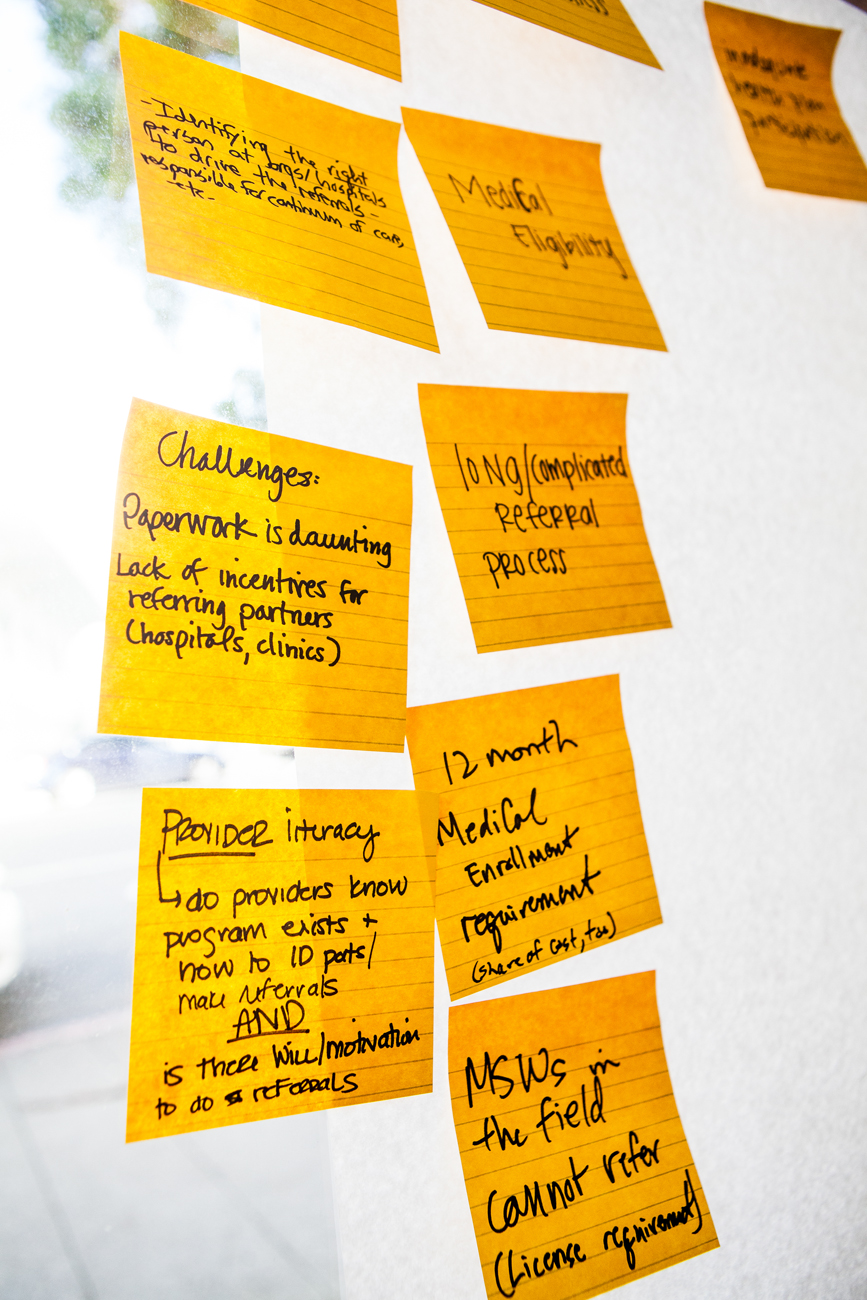 - Identifying the right
person at orgs/hospitals
to drive the referrals -
responsible for continuum of care,
-etc-
MediCal
Eligibility
Challenges:
Paperwork is daunting
Lack of incentives for
referring partners
(hospitals, clinics)
loNg/complicated
Referral
process
12 month
MediCal
Enrollment
requirement
(share of cost, too)
PROVIDER literacy
do providers know
program exists +
how to ID pats/
make referrals
AND
is there will/motivation
to do referrals
MSWs in
the field
cannot refer
(License requirement)